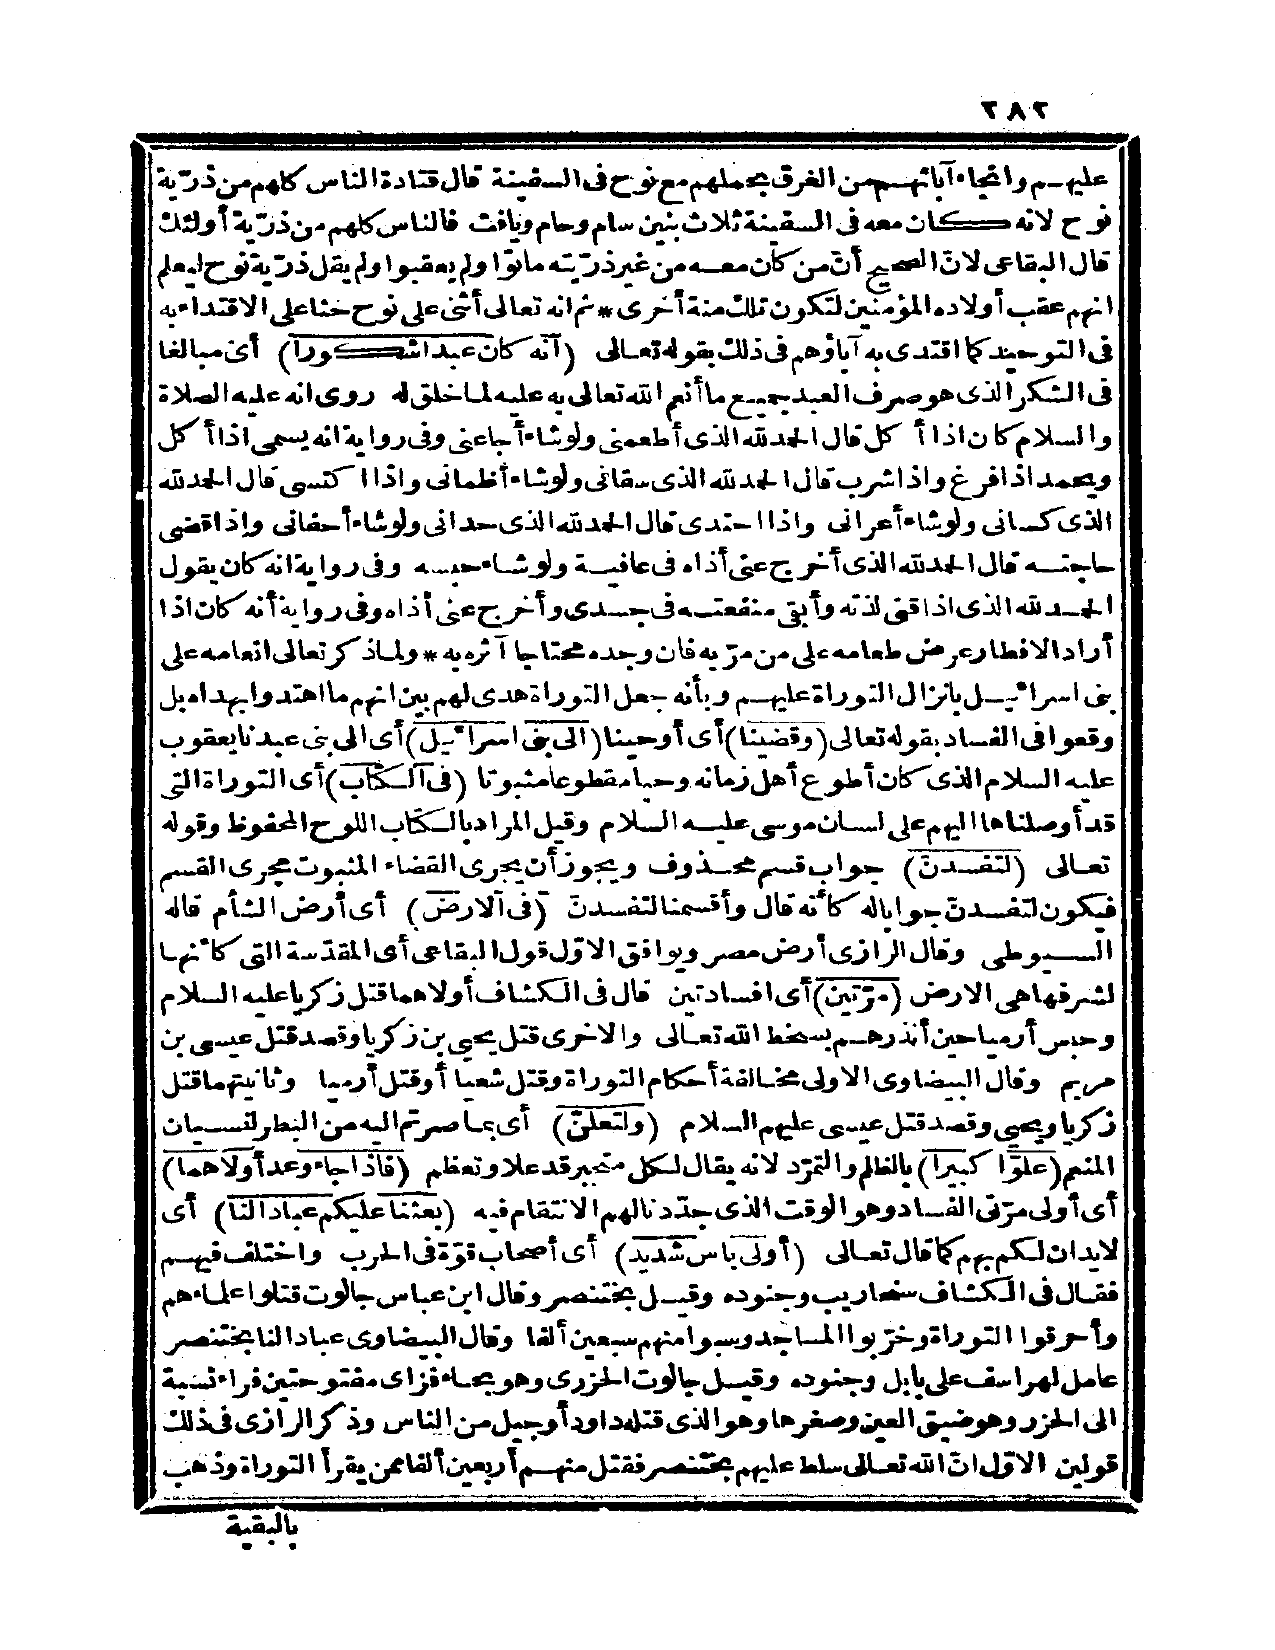 ٢٨٢
عليهم وانجاء آبائهم من الغرق بحملهم مع نوح فى السفينة قال قتادة الناس كلهم من ذرّية
نوح لانه كان معه فى السفينة ثلاث بنين سام وحام ويافث فالناس كلهم من ذرّية أولئك
قال البقاعى لانّ الصحيح أنّ من كان معه من غير ذرّيته ماتوا ولم يعقبوا ولم يقل ذرّية نوح ليعلم
انهم عقب أولاده المؤمنين لتكون تلك منة أخرى * ثم انه تعالى أثنى على نوح حثا على الاقتداء به
فى التوحيد كما اقتدى به آباؤهم فى ذلك بقوله تعالى (انّه كان عبدا شكورا) أى مبالغا
فى الشكر الذى هو صرف العبد جميع ما أنعم الله تعالى به عليه لما خلق له روى انه عليه الصلاة
والسلام كان اذا أكل قال الحمد لله الذى أطعمنى ولو شاء أجاعنى وفى رواية انه يسمى اذا أكل
ويحمد اذا فرغ واذا شرب قال الحمد لله الذى سقانى ولو شاء أظمانى واذا اكتسى قال الحمد لله
الذى كسانى ولو شاء أعرانى واذا احتذى قال الحمد لله الذى حذانى ولو شاء أحفانى واذا قضى
حاجته قال الحمد لله الذى أخرج عنى أذاه فى عافية ولو شاء حبسه وفى رواية انه كان يقول
الحمد لله الذى اذاقنى لذته وأبقى منفعته فى جسدى وأخرج عنى أذاه وفى رواية أنه كان اذا
أراد الافطار عرض طعامه على من مرّ به فان وجده محتاجا آثره به * ولما ذكر تعالى انعامه على
بنى اسرائيل بانزال التوراة عليهم وبأنه جعل التوراة هدى لهم بين انهم ما اهتدوا بهداه بل
وقعوا فى الفساد بقوله تعالى (وقضينا) أى أوحينا (الى بنى اسرائيل) أى الى بنى عبدنا يعقوب
عليه السلام الذى كان أطوع أهل زمانه وحيا مقطوعا مثبوتا (فى الكتاب) أى التوراة التى
قد أوصلناها اليهم على لسان موسى عليه السلام وقيل المراد بالكتاب اللوح المحفوظ وقوله
تعالى (لتفسدنّ) جواب قسم محذوف ويجوز أن يجرى القضاء المثبوت مجرى القسم
فيكون لتفسدنّ جوابا له كأنه قال وأقسمنا لتفسدنّ (فى الارض) أى أرض الشأم قاله
السيوطى وقال الرازى أرض مصر ويوافق الاوّل قول البقاعى أى المقدّسة التى كأنها
لشرفها هى الارض (مرّتين) أى افسادتين قال فى الكشاف أولاهما قتل زكريا عليه السلام
وحبس أرميا حين أنذرهم بسخط الله تعالى والاخرى قتل يحيى بن زكريا وقصد قتل عيسى بن
مريم وقال البيضاوى الاولى مخالفة أحكام التوراة وقتل شعيا أو قتل أرميا وثانيتهما قتل
زكريا ويحيى وقصد قتل عيسى عليهم السلام (ولتعلنّ) أى بما صرتم اليه من البطر لنسيان
المنعم (علوّا كبيرا) بالظلم والتمرّد لانه يقال لكل متجبر قد علا وتعظم (فاذا جاء وعد أولاهما)
أى أولى مرّتى الفساد وهو الوقت الذى حدّدنا لهم الانتقام فيه (بعثنا عليكم عبادا لنا) أى
لا يدان لكم بهم كما قال تعالى (أولى باس شديد) أى أصحاب قوّة فى الحرب واختلف فيهم
فقال فى الكشاف سنحاريب وجنوده وقيل بختنصر وقال ابن عباس جالوت قتلوا علماءهم
وأحرقوا التوراة وخرّبوا المساجد وسبوا منهم سبعين ألفا وقال البيضاوى عبادا لنا بختنصر
عامل لهراسف على بابل وجنوده وقيل جالوت الخزرى وهو بخاء فزاى مفتوحتين فراء نسبة
الى الخزر وهو ضيق العين وصغرها وهو الذى قتله داود أو جيل من الناس وذكر الرازى فى ذلك
قولين الاوّل انّ الله تعالى سلط عليهم بختنصر فقتل منهم أربعين ألفا ممن يقرأ التوراة وذهب
بالبقية